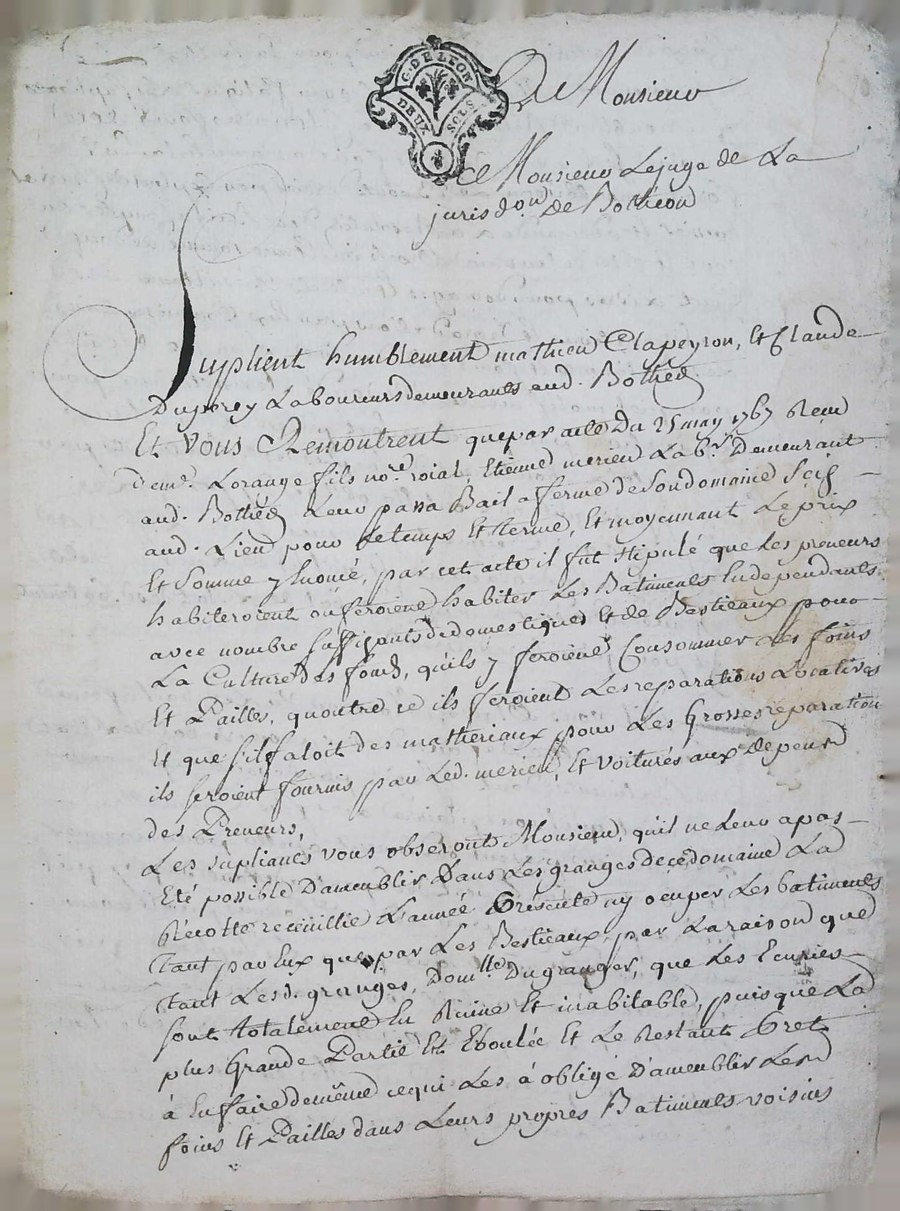 G. DE LEON
DEUX SOLS
A Monsieur
Monsieur Lejuge de La
jurisd.on de Bothéon
Suplient humblement mathieu Clapeyron, et Claude
Duperey Laboureurs demeurants aud. Bothéon
Et Vous Remontrent que par acte Du 25 may 1767 Reçu
dem.e Lorange fils no.re roial, Etienne merieu Lab.r Demeurant
aud. Bothéon Leur passa Bail a ferme de Son domaine Scis
aud. Lieu pour Le temps Et terme, Et moyennant Le prix
Et Somme y Enoncé, par cet acte il fut stipulé que Les preneurs
habiteroient ou feroient habiter Les Batiments Independants
avec nombre Suffisants de domestiques et de Bestieaux pour
La Culture des fonds, qu'ils y feroient Consommer Les foins
Et Pailles, quoutre ce ils feroient Les reparations Locatives
Et que s'il faloit des matheriaux pour Les Grosses reparation
ils seroient fournis par Led. merieu, Et Voiturés aux Depens
des Preneurs,
Les supliants vous observront Monsieur, qu'il ne Leur a pas
Eté possible D'ameublir Dans Les granges de ce domaine La
Récolte receuillie L'année Présente ny ocuper Les batiments
tant par Eux que par Les Bestieaux, par La raison que
tant Lesd. granges, Dom.lle Du granger, que Les Ecuries
sont totalement En Ruine Et inabitable, puisque La
plus Grande Partie Est Eboulée Et Le Restant Pret
à En faire de même ce qui Les à obligé D'ameubler Les
foins Et Pailles dans Leurs propres Batiments voisins